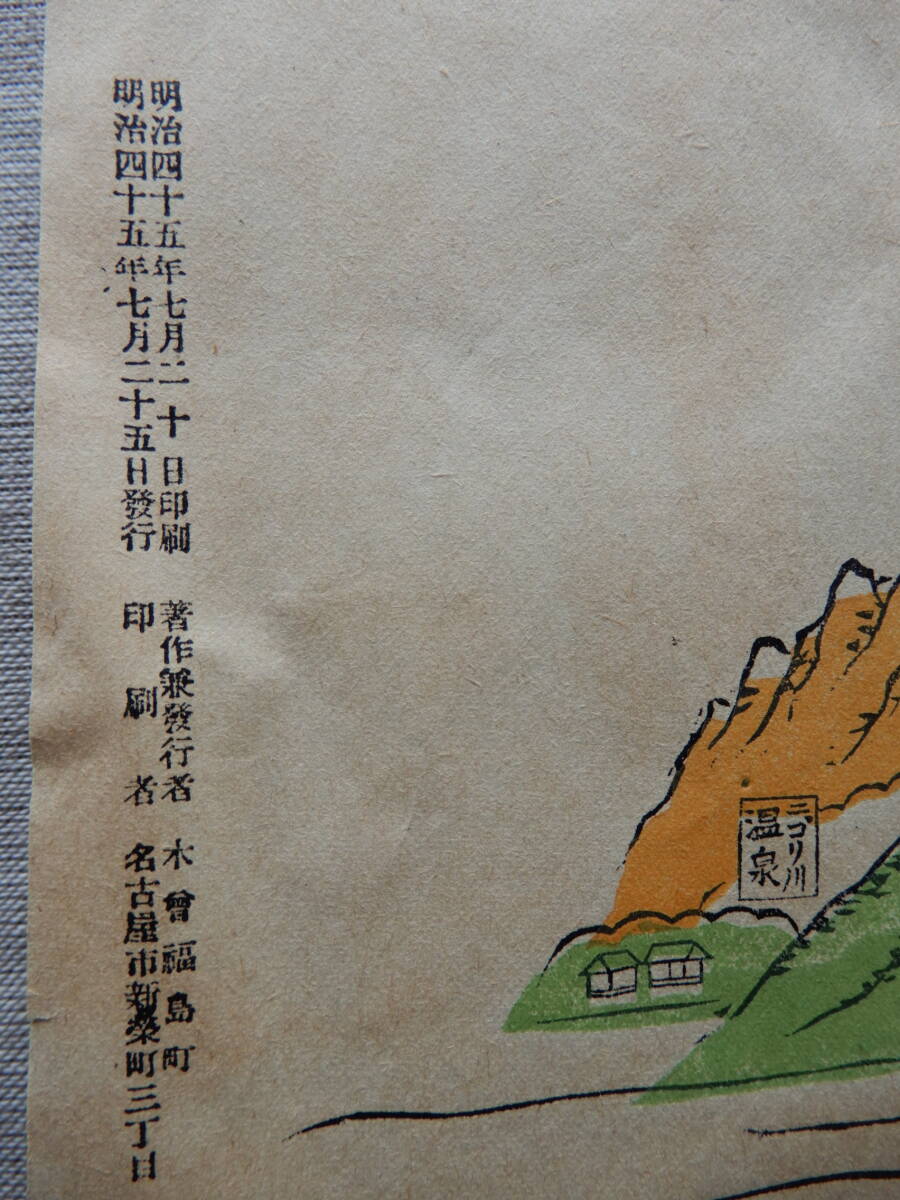 明治四十五年七月二十日印刷 著作兼發行者 木曾福島町
明治四十五年七月二十五日發行 印刷者 名古屋市新榮町三丁目
ニゴリ川
温泉